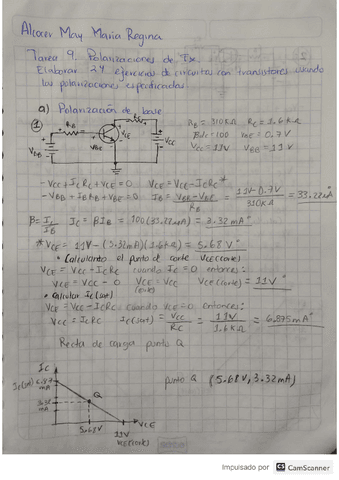 Alcocer May Maria Regina
Tarea 9. Polarizaciones de Tse.
Elaborar 24 ejercicios de circuitos con transistores usando
las polarizaciones especificadas
a) Polarización de base
①
RB RC VCE VCC VBE VBB
RB = 310KΩ RC = 1.6KΩ
βdc = 100 VBE = 0.7V
VCC = 11V VBB = 11V
-VCC + ICRC + VCE = 0 VCE = VCC - ICRC *
-VBB + IBRB + VBE = 0 IB = VBB - VBE / RB = 11V - 0.7V / 310KΩ = 33.22mA
β = IC / IB IC = βIB = 100(33.22mA) = 3.32mA
*VCE = 11V - (3.32mA)(1.6KΩ) = 5.68V
• Calculando el punto de corte VCE(corte)
VCE = VCC - ICRC cuando IC = 0 entonces:
VCE = VCC - 0 VCE(corte) = VCC VCE(corte) = 11V
• Calcular IC(sat)
VCE = VCC - ICRC cuando VCE = 0 entonces:
VCC = ICRC IC(sat) = VCC / RC = 11V / 1.6KΩ = 6.875mA
Recta de carga punto Q
IC
IC(sat) 6.87 mA
3.32 mA
Q
VCE
5.68V 11V
VCE(corte)
punto Q (5.68V, 3.32mA)
Impulsado por CS CamScanner